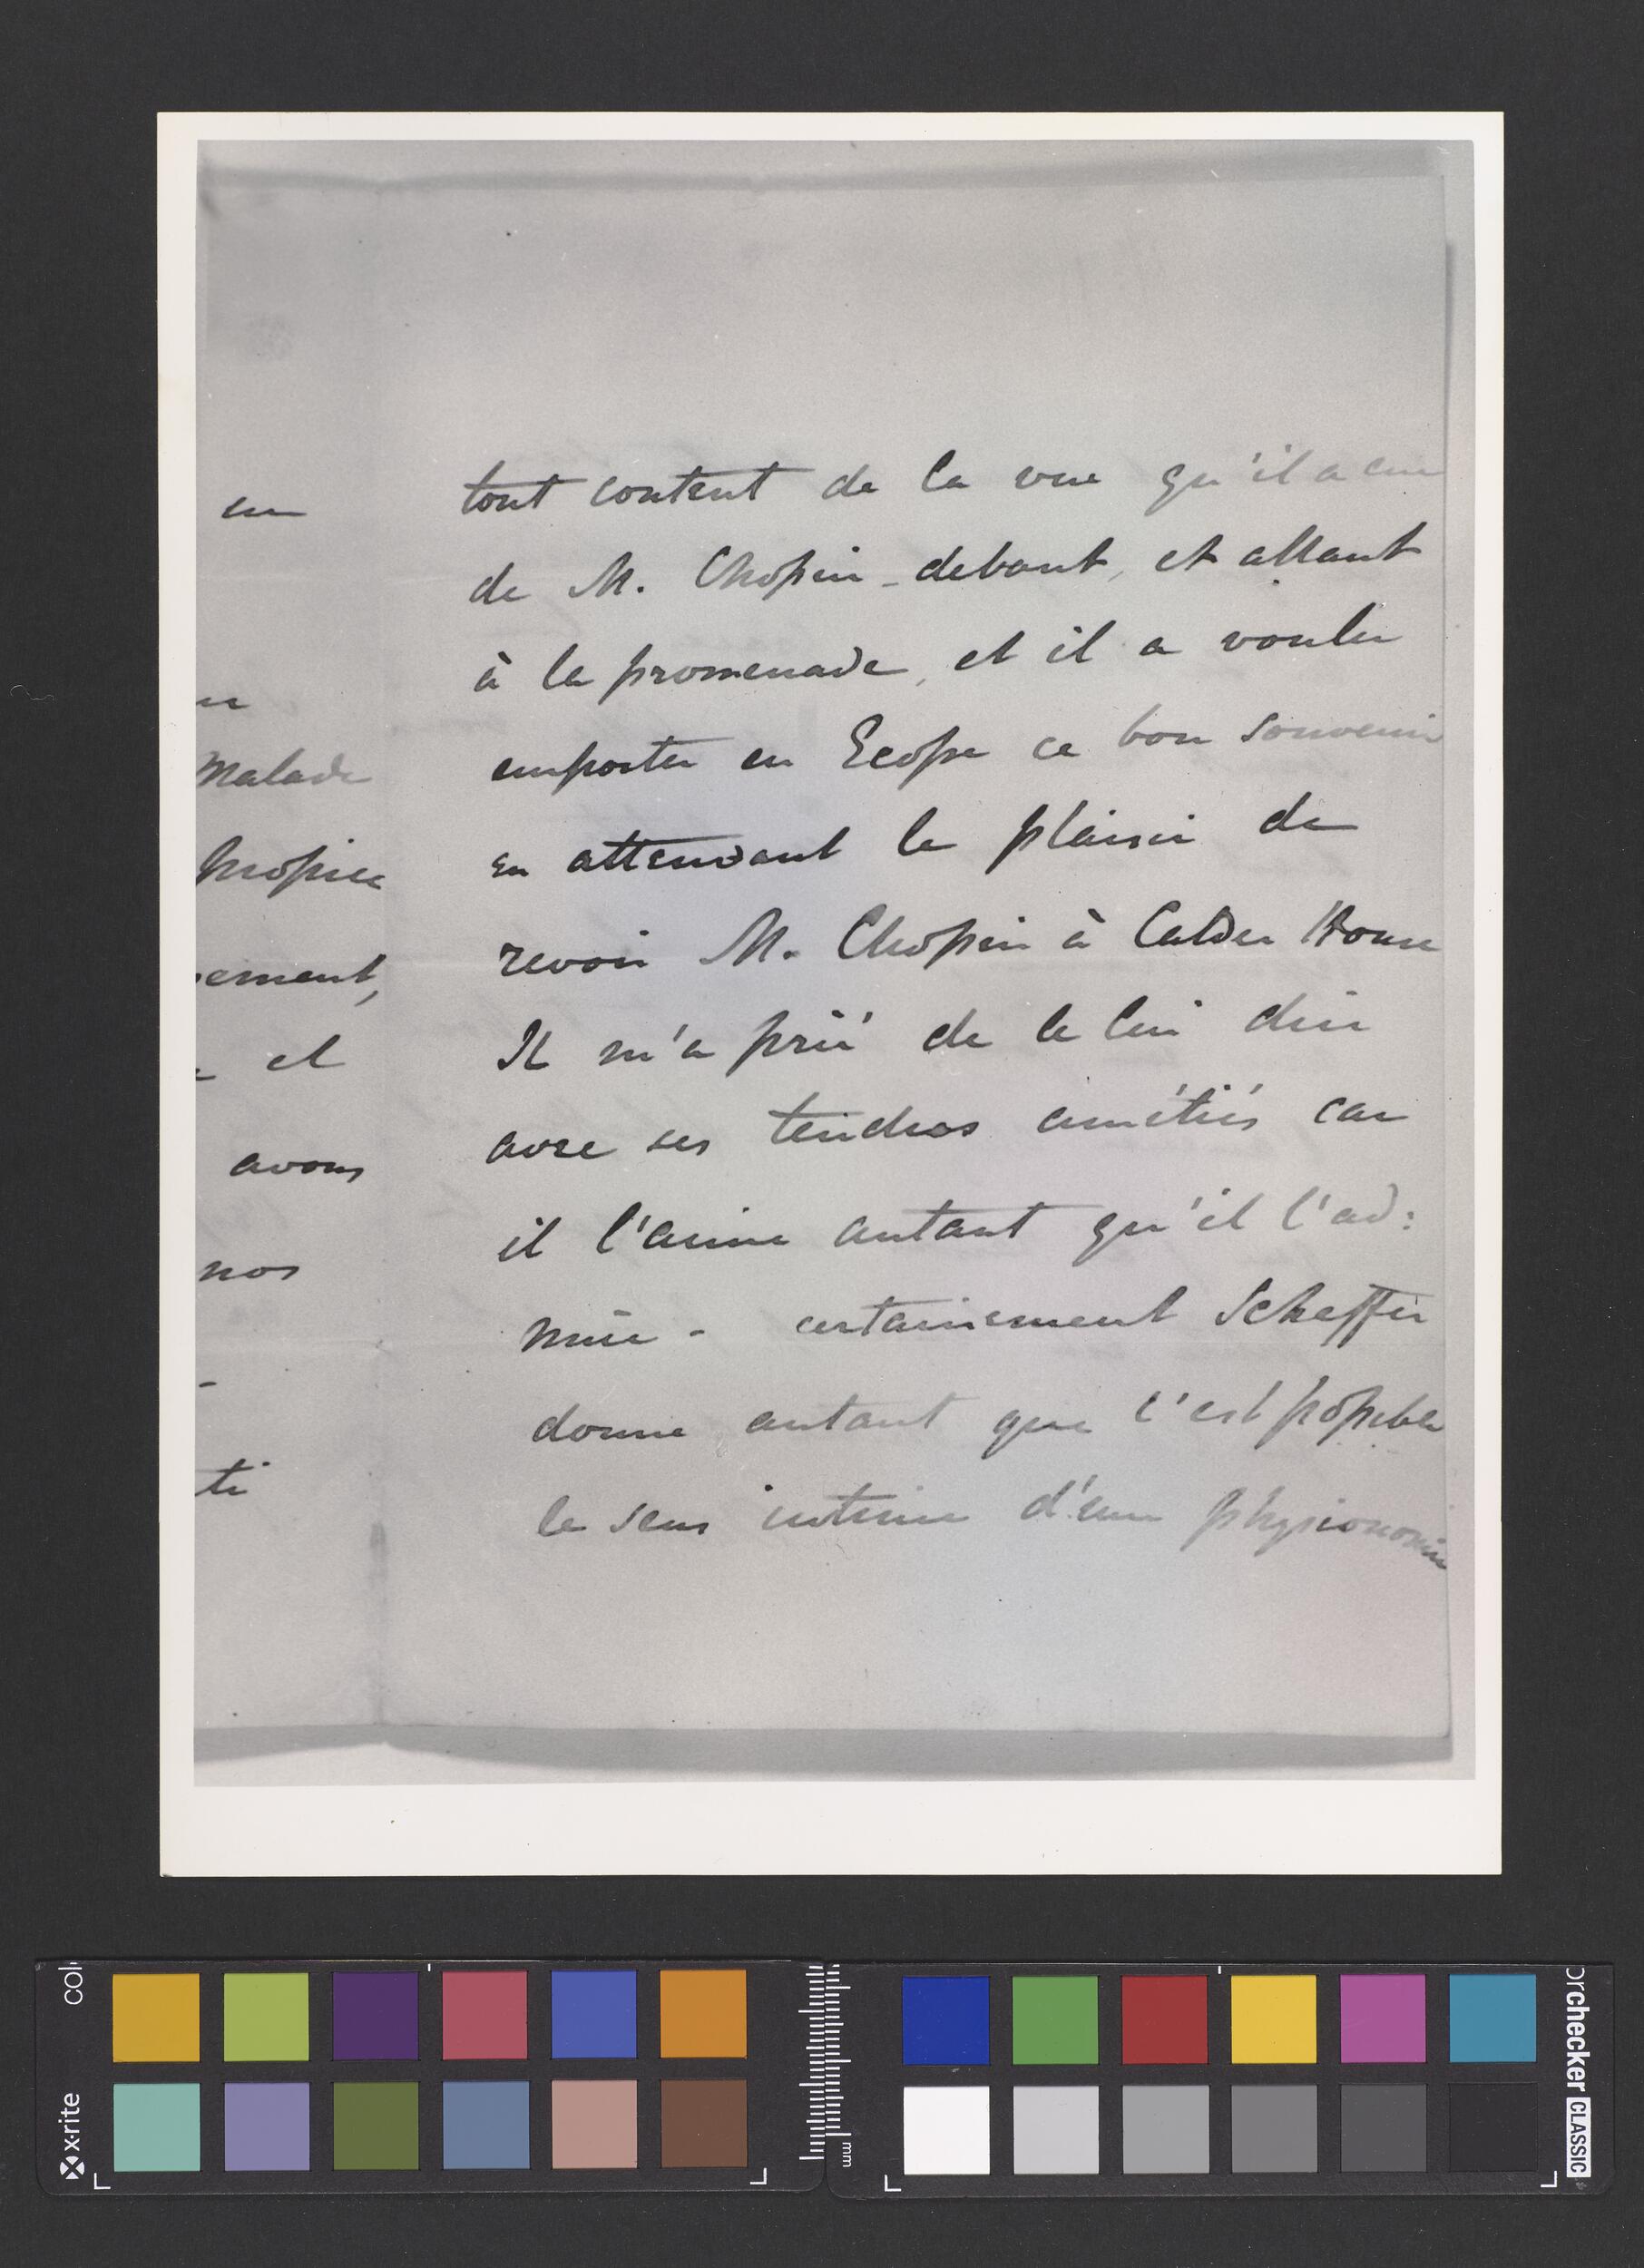 en
malade
propice
ement,
et
avons
nos
ti
tout content de la vue qu'il a eue
de M. Chopin - debout, et allant
à la promenade, et il a voulu
emporter en Ecosse ce bon souvenir
en attendant le plaisir de
revoir M. Chopin à Calder House
Il m'a prié de le lui dire
avec ses tendres amitiés car
il l'aime autant qu'il l'ad:
mire - certainement Scheffer
donne autant que c'est possible
le sens intime d'une physionomie
col
x·rite
mm
orchecker CLASSIC